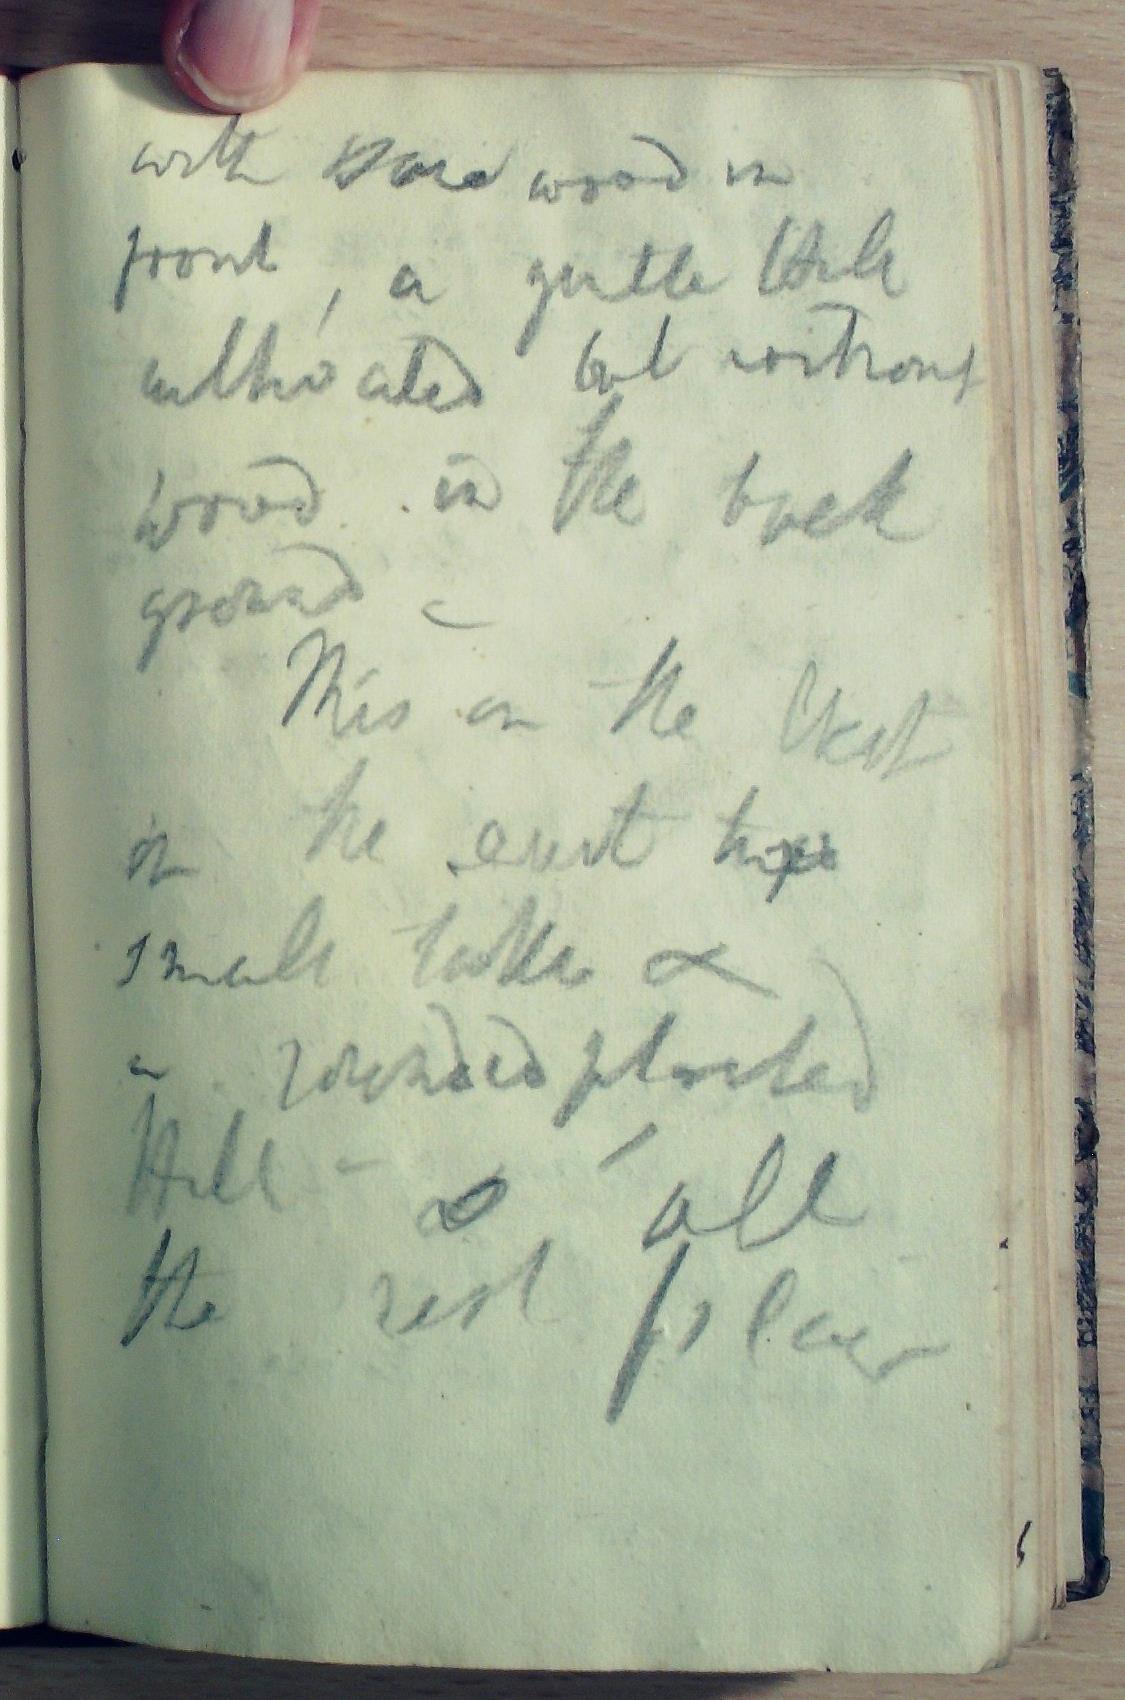 with some wood in
front, a gentle Hill
cultivated but without
wood in the back
ground –
This on the West
on the east two
small lakes &
a rounded planted
Hill – & all
the rest plain